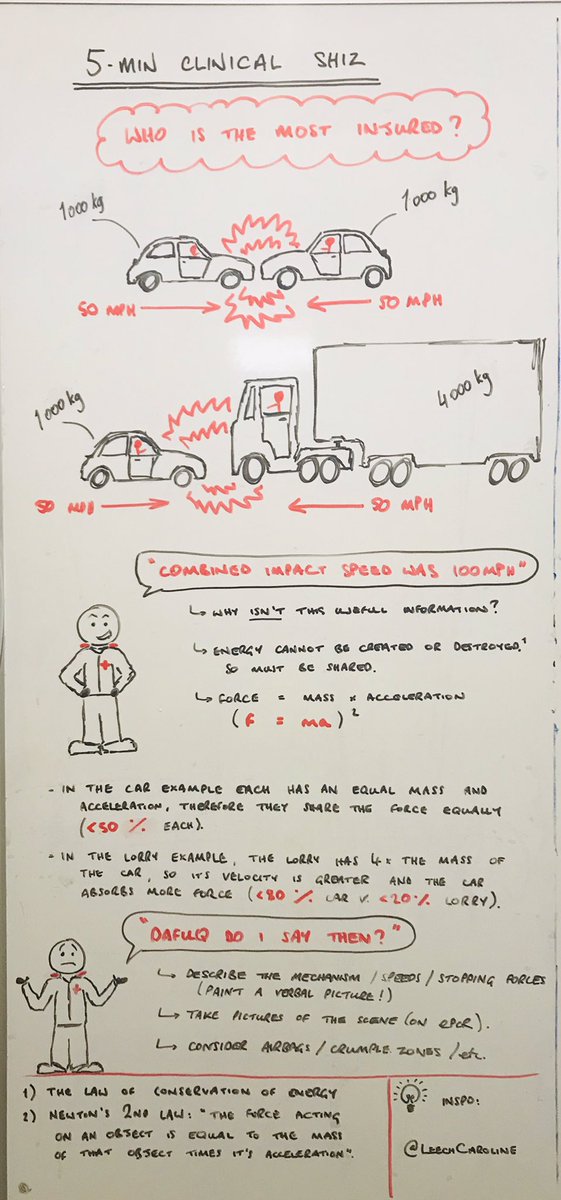 5-MIN CLINICAL SHIZ
WHO IS THE MOST INJURED?
1000 kg
1000 kg
50 MPH
50 MPH
1000 kg
4000 kg
50 MPH
50 MPH
"COMBINED IMPACT SPEED WAS 100MPH"
↳ WHY ISN'T THIS USEFULL INFORMATION?
↳ ENERGY CANNOT BE CREATED OR DESTROYED,¹
SO MUST BE SHARED.
↳ FORCE = MASS × ACCELERATION
(F = ma)²
- IN THE CAR EXAMPLE EACH HAS AN EQUAL MASS AND
ACCELERATION, THEREFORE THEY SHARE THE FORCE EQUALLY
(<50% EACH).
- IN THE LORRY EXAMPLE, THE LORRY HAS 4× THE MASS OF
THE CAR, SO ITS VELOCITY IS GREATER AND THE CAR
ABSORBS MORE FORCE (<80% CAR V. <20% LORRY).
"DAFUQ DO I SAY THEN?"
↳ DESCRIBE THE MECHANISM / SPEEDS / STOPPING FORCES
(PAINT A VERBAL PICTURE!)
↳ TAKE PICTURES OF THE SCENE (ON EPCR).
↳ CONSIDER AIRBAGS / CRUMPLE ZONES / etc.
1) THE LAW OF CONSERVATION OF ENERGY
2) NEWTON'S 2ND LAW: "THE FORCE ACTING
ON AN OBJECT IS EQUAL TO THE MASS
OF THAT OBJECT TIMES IT'S ACCELERATION".
INSPO:
@LEECHCAROLINE